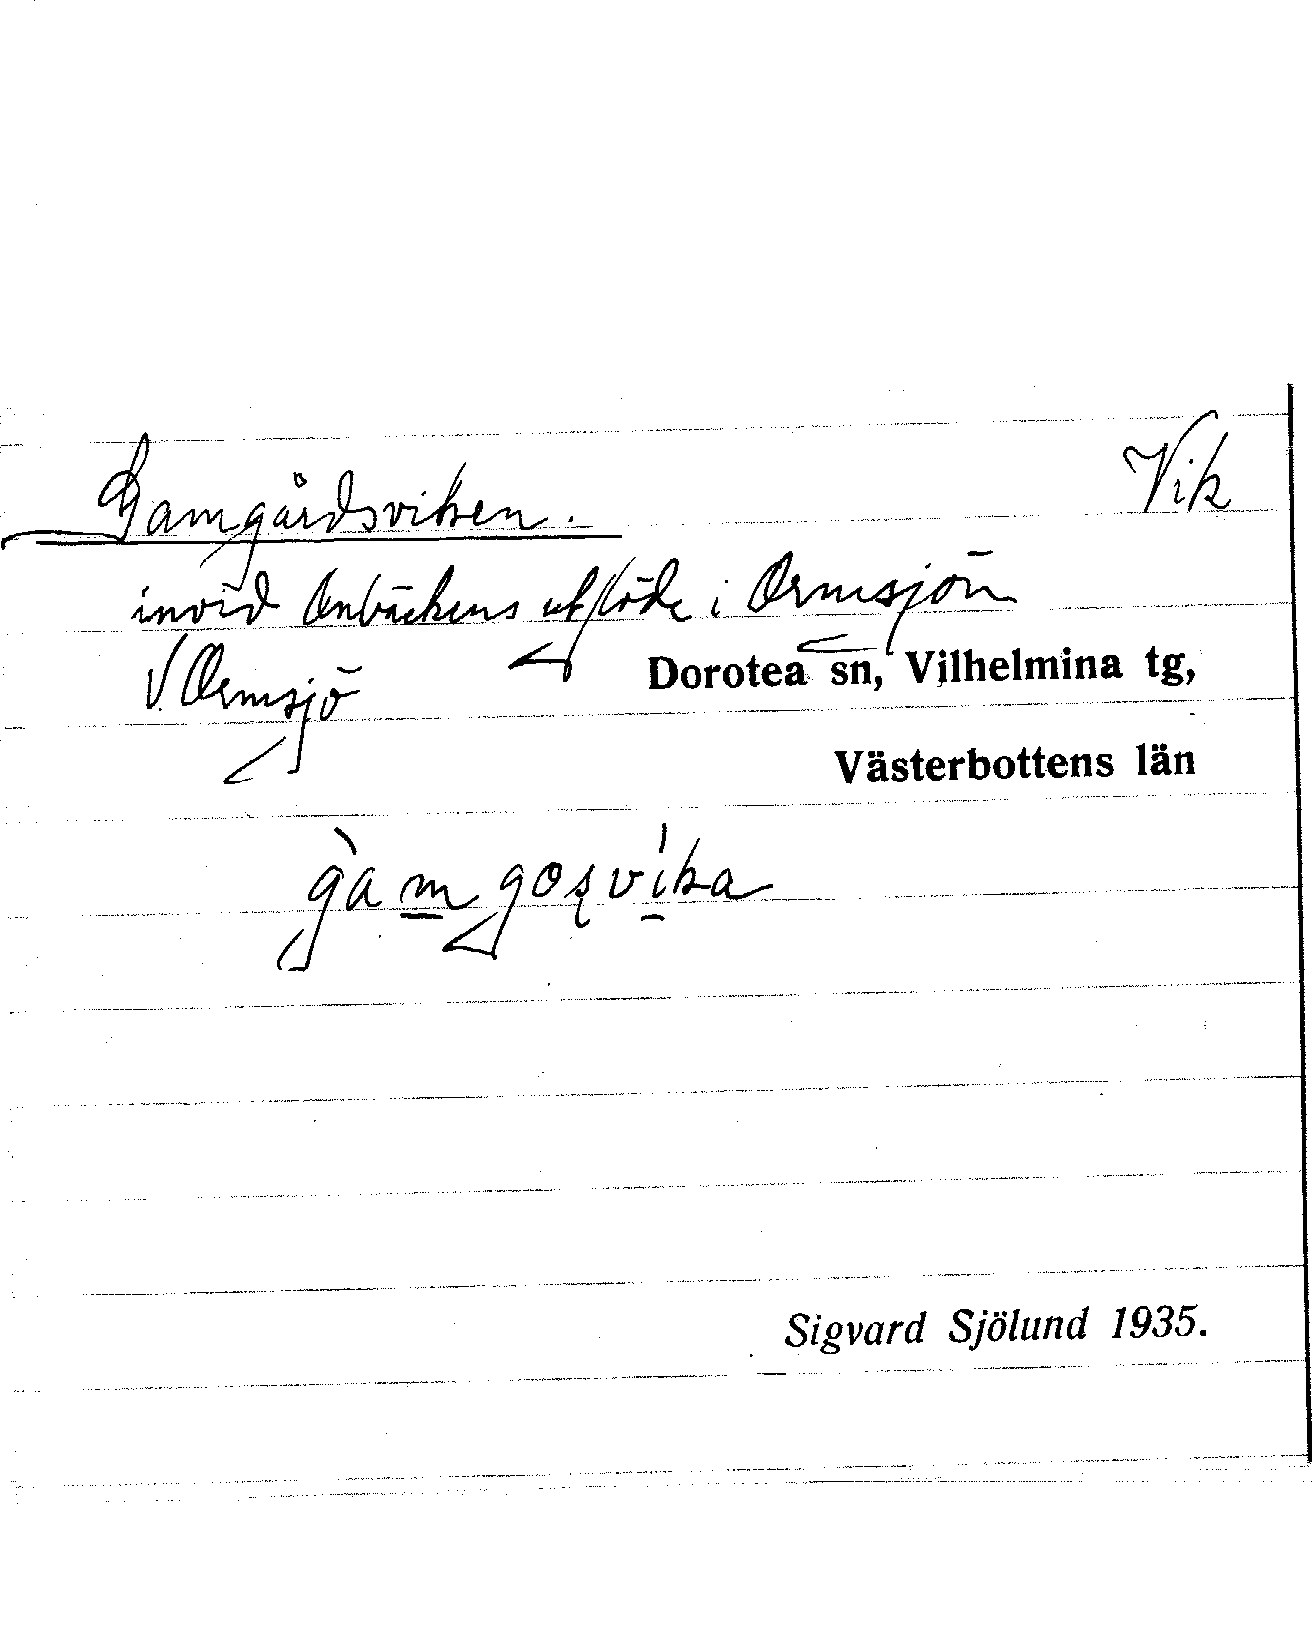 Gamgårdsviken. Vik
invid Önbäckens utflöde i Ormsjön
V. Ormsjö Dorotea sn, Vilhelmina tg,
Västerbottens län
gàmgosvíka
Sigvard Sjölund 1935.